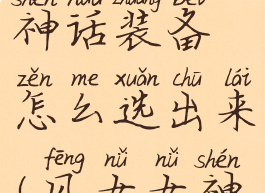 shén huà zhuāng bèi
神话装备
zěn me xuǎn chū lái
怎么选出来
fēng nǚ nǚ shén
(风女女神